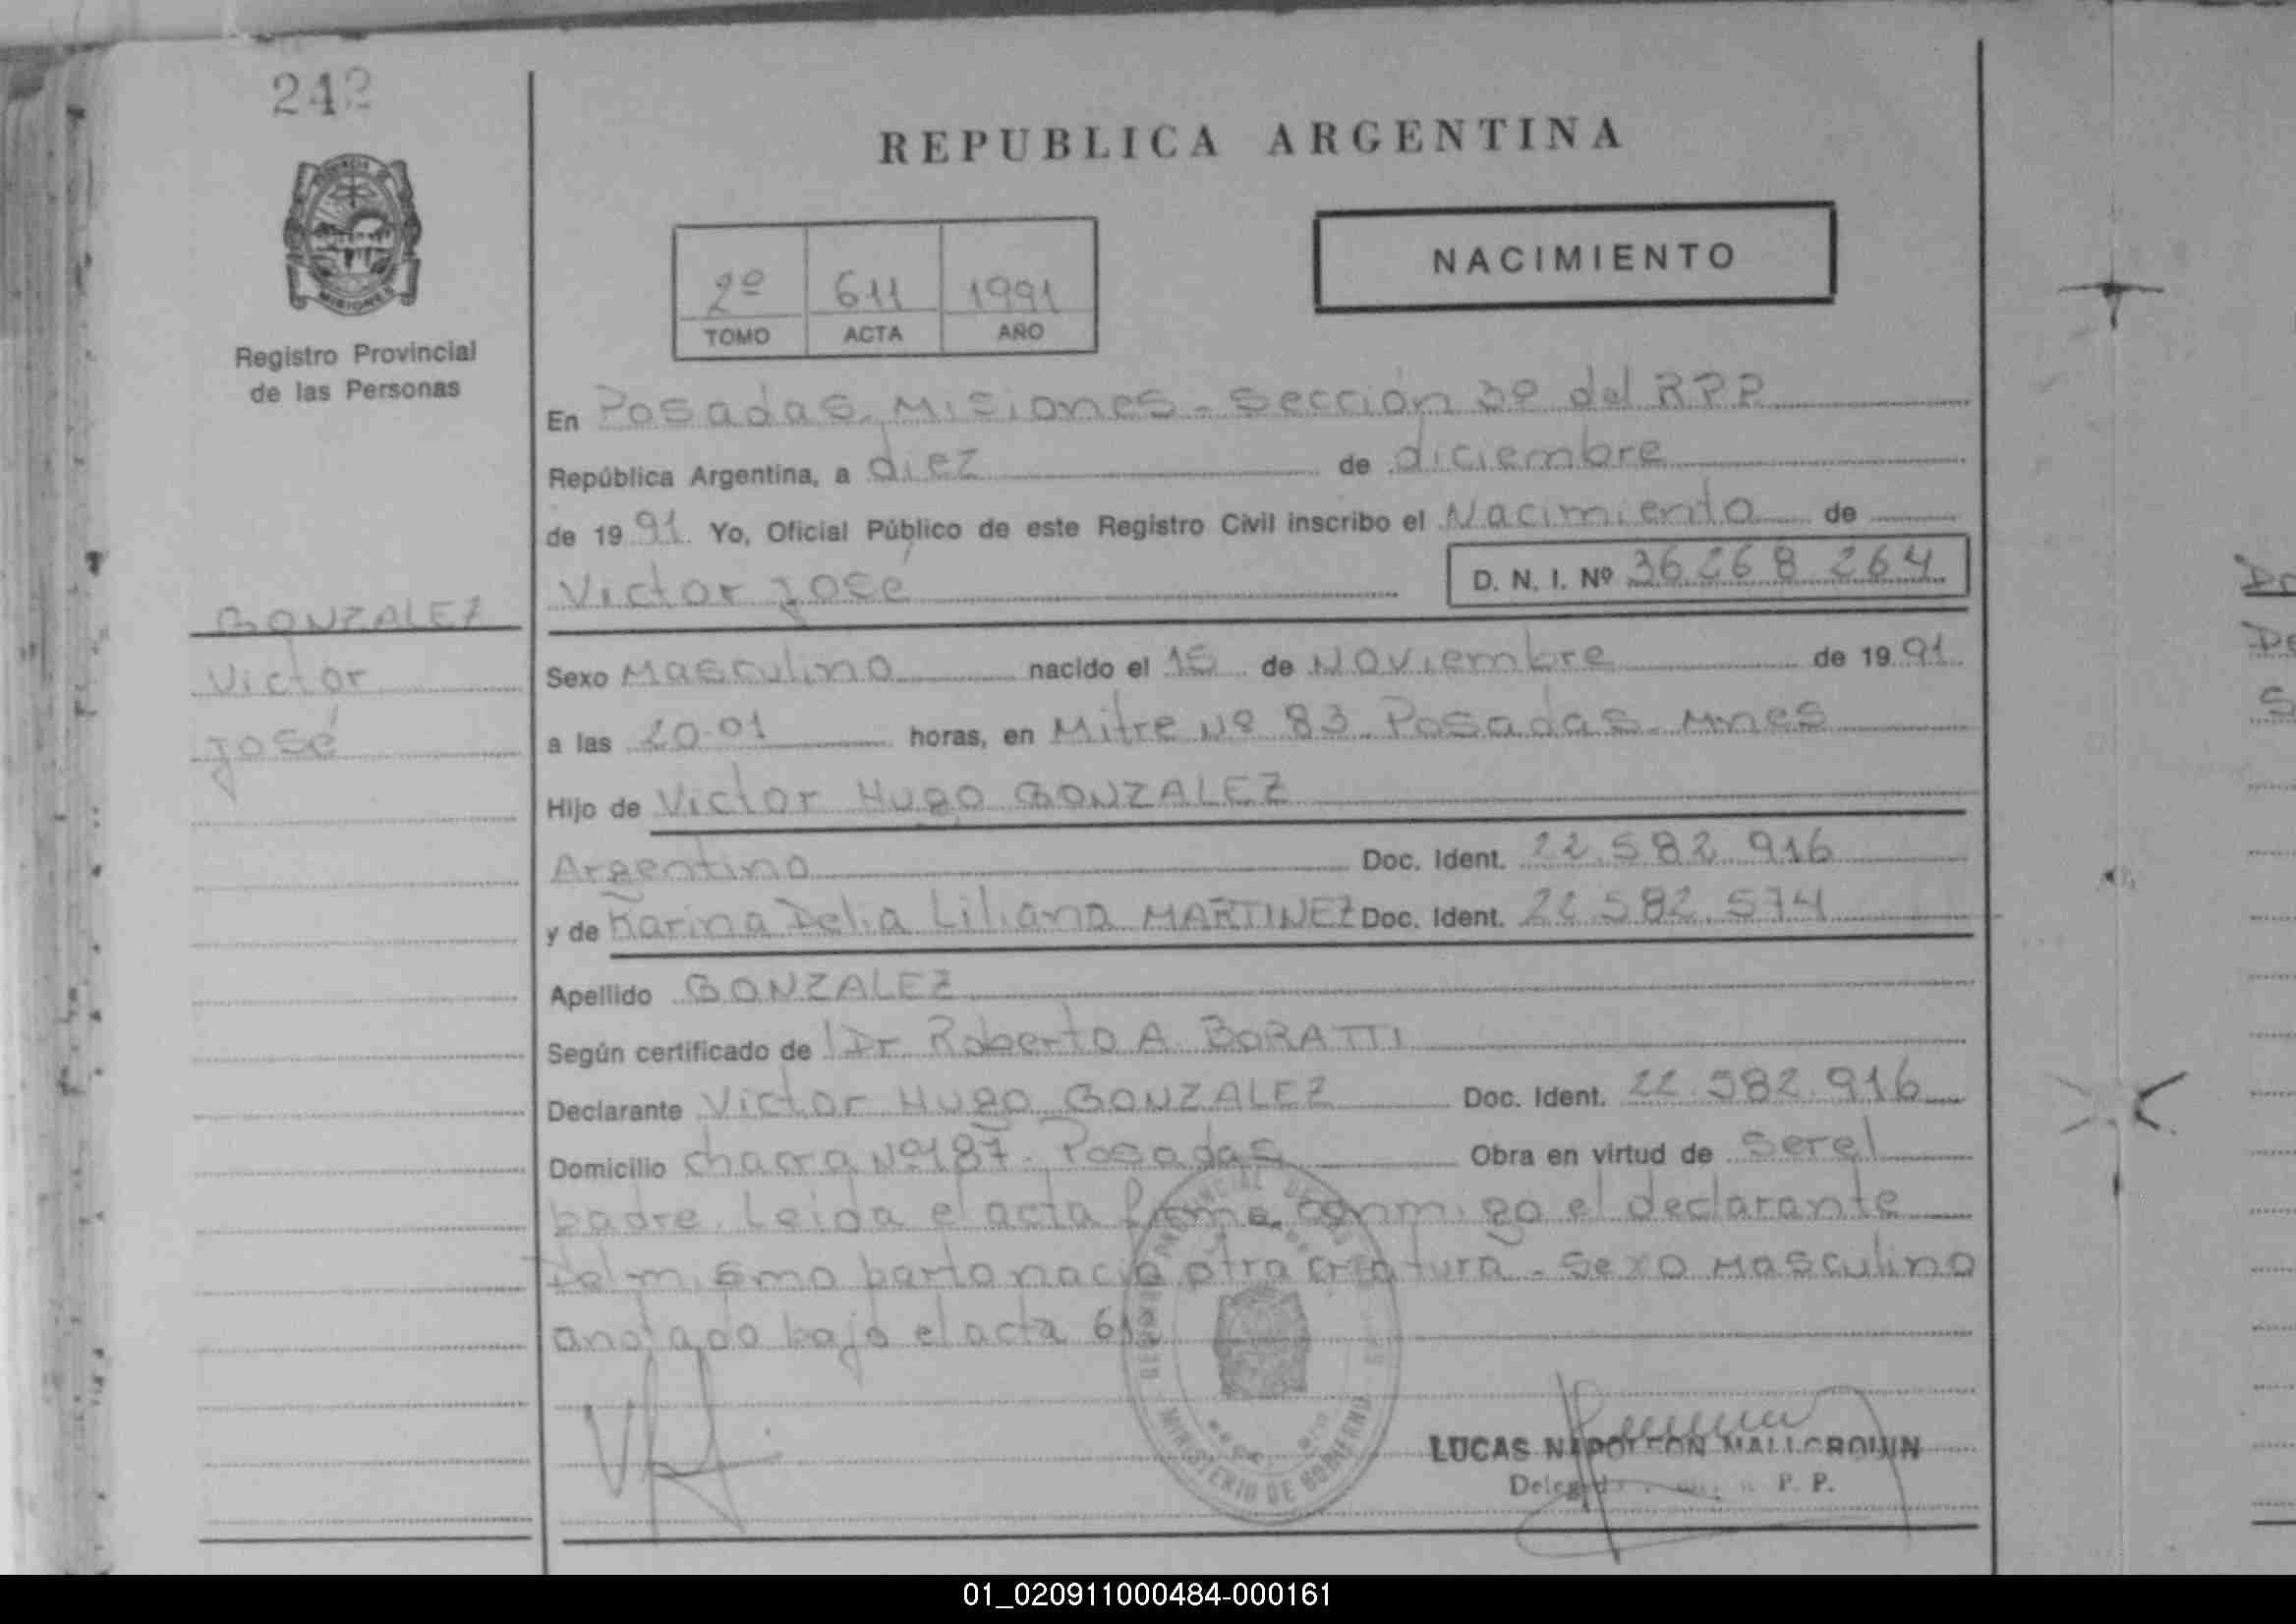 242
REPUBLICA ARGENTINA
NACIMIENTO
2º 611 1991
TOMO ACTA AÑO
MISIONES
Registro Provincial
de las Personas
En Posadas, Misiones - Sección 3º del RPP
República Argentina, a diez de diciembre
de 1991. Yo, Oficial Público de este Registro Civil inscribo el Nacimiento de
Victor José D. N. I. Nº 36.268.264
GONZALEZ
Victor
José
Sexo Masculino nacido el 15 de Noviembre de 1991
a las 20.01 horas, en Mitre Nº 83 Posadas - Mnes
Hijo de Victor Hugo GONZALEZ
Argentino Doc. Ident. 22.582.916
y de Karina Delia Liliana MARTINEZ Doc. Ident. 22.582.574
Apellido GONZALEZ
Según certificado de Dr Roberto A. BORATTI
Declarante Victor Hugo GONZALEZ Doc. Ident. 22.582.916
Domicilio chacra Nº187 - Posadas Obra en virtud de ser el
padre. Leida el acta firma conmigo el declarante
Del mismo parto nació otra criatura - sexo Masculino
anotado bajo el acta 612
MINISTERIO DE GOBIERNO
LUCAS NAPOLEON MALLORQUIN
P. P.
01_020911000484-000161